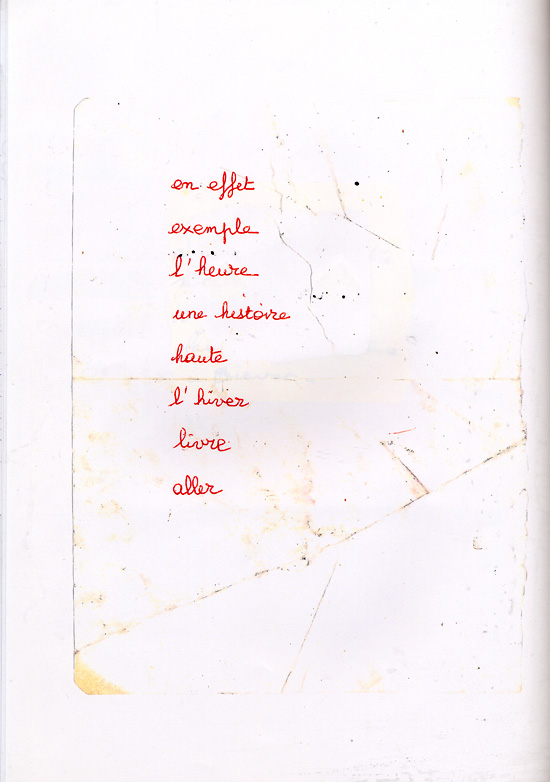 en effet
exemple
l'heure
une histoire
haute
l'hiver
livre
aller